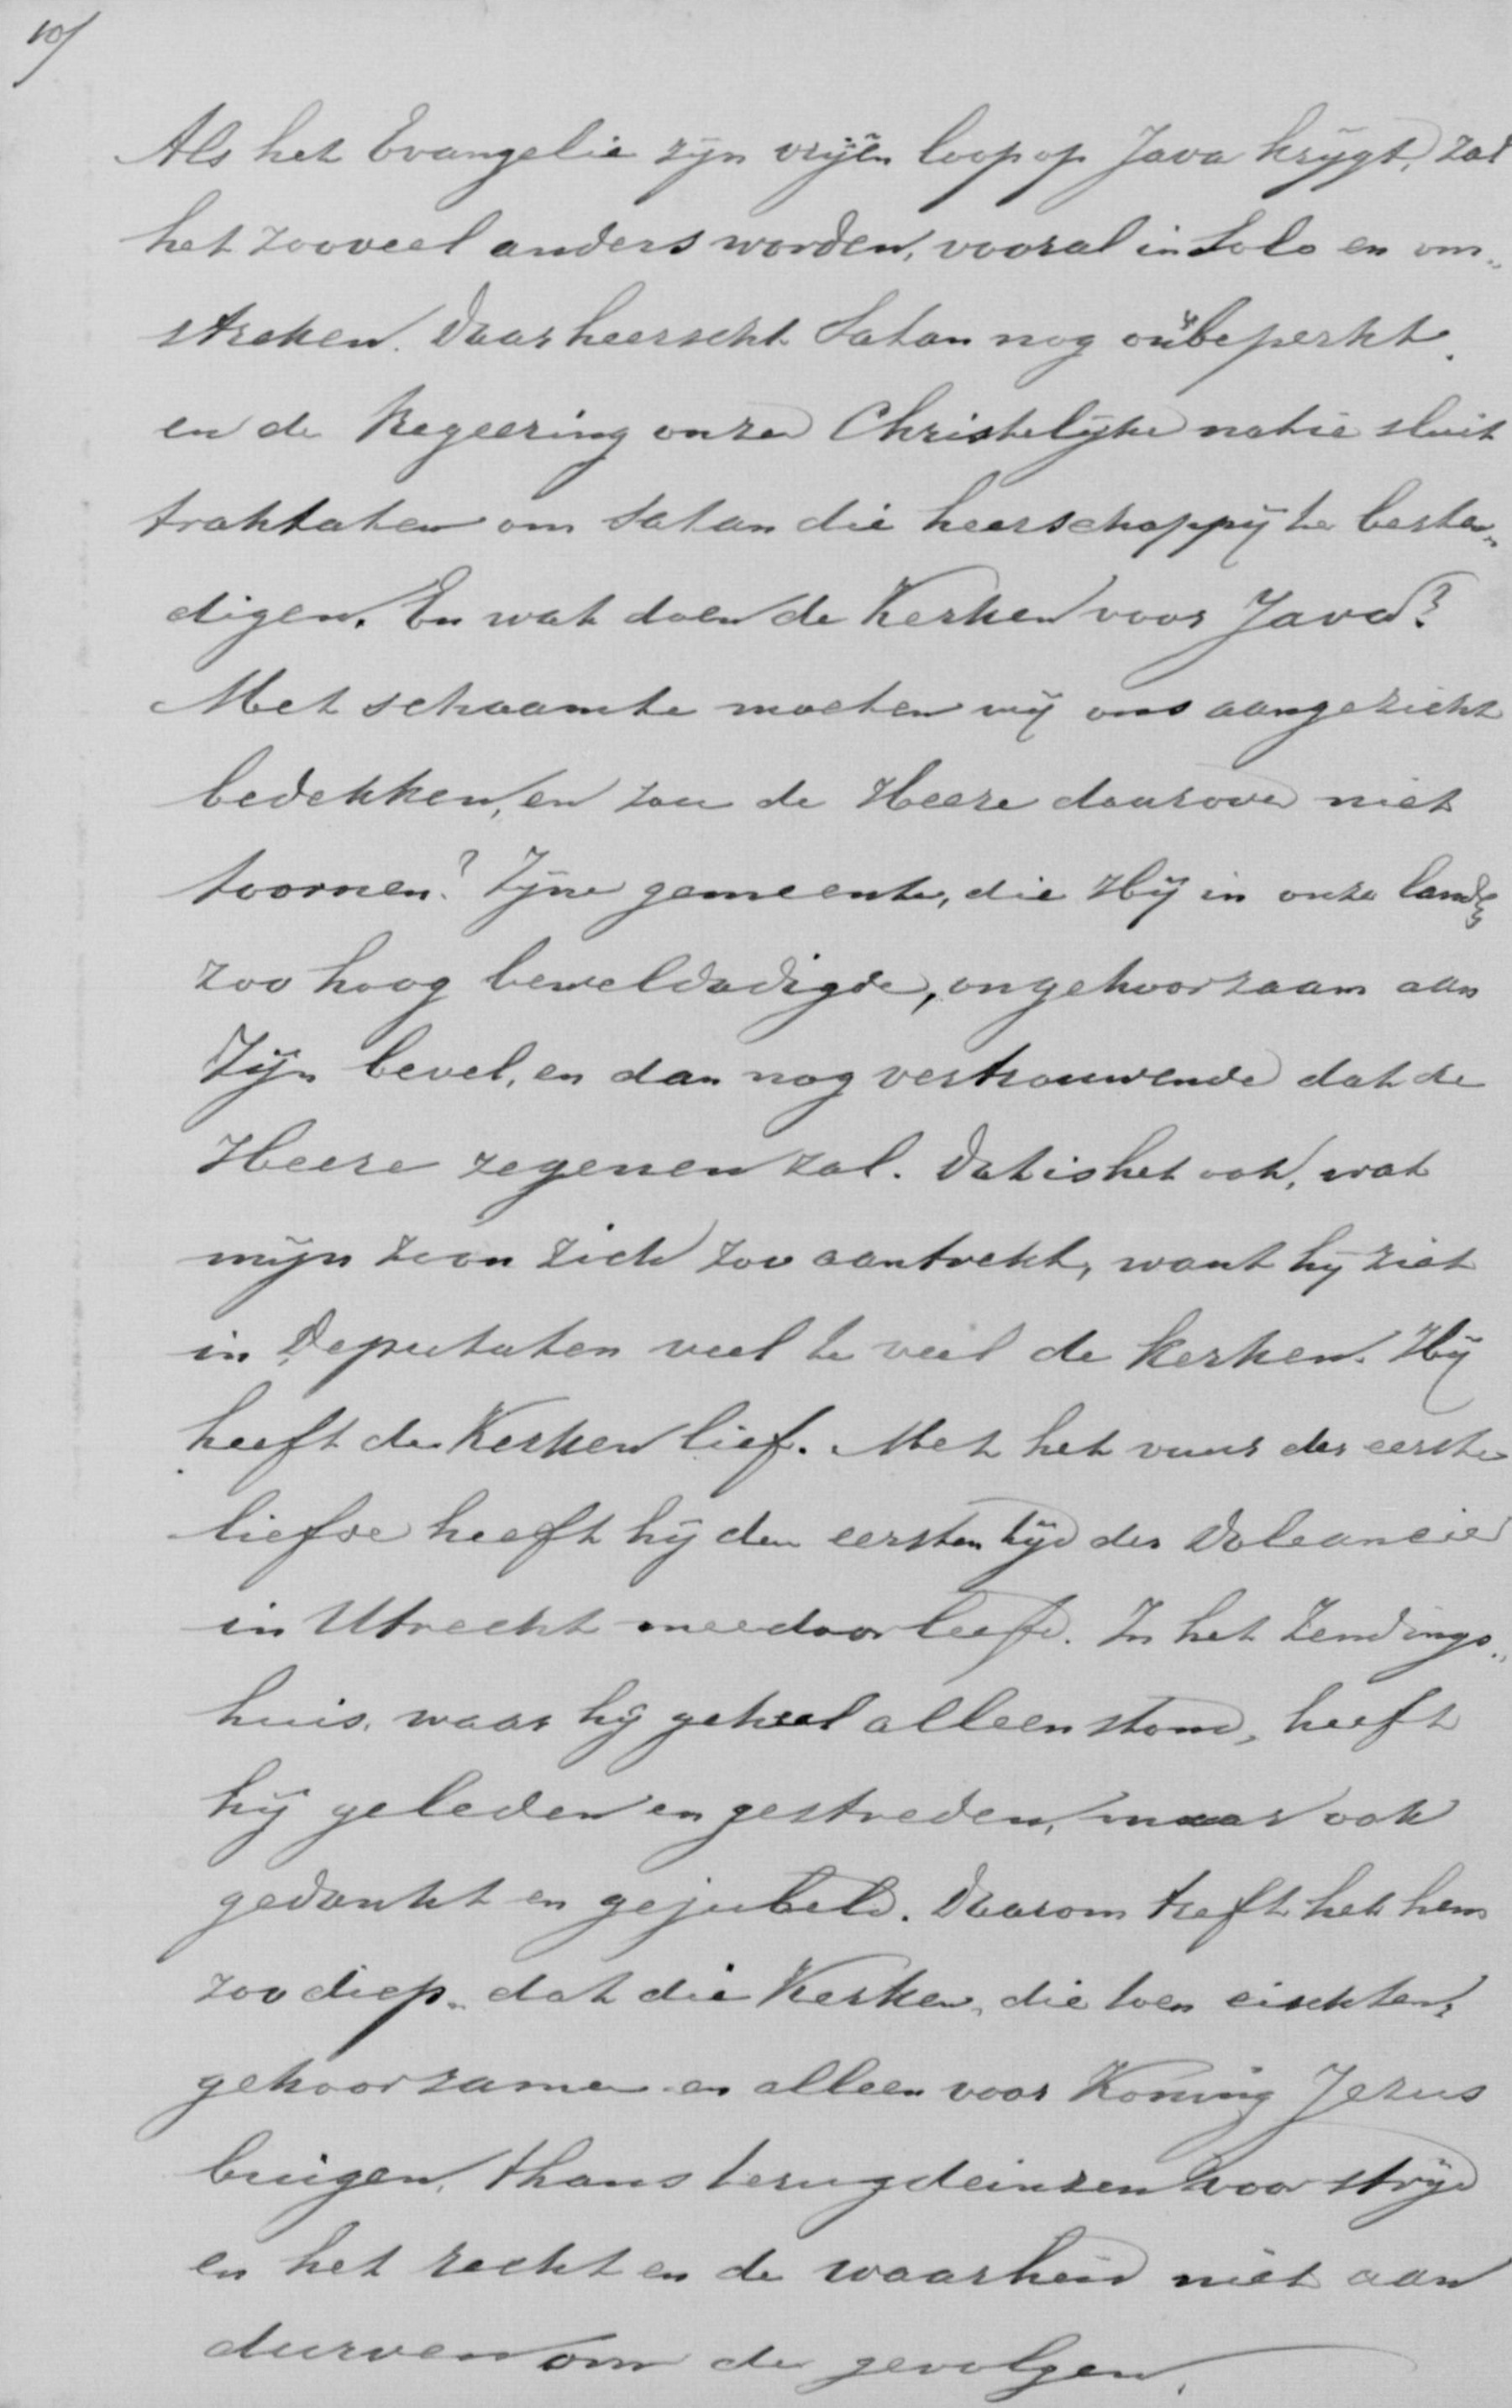 10/
Als het Evangelie zijn vrijen loop op Java krijgt, zal
het zooveel anders worden, vooral in Solo en om„
streken. Daar heerscht Satan nog onbeperkt.
en de Regeering onzer Christelijke natie sluit
traktaten om Satan die heerschappij te besten„
digen. En wat doen de Kerken voor Java?
Met schaamte moeten wij ons aangezicht
bedekken, en zou de Heere daarover niet
toornen? Zijne gemeente, die Hij in onze lande
zoo hoog beweldadigde, ongehoorzaam aan
Zijn bevel, en dan nog vertrouwende dat de
Heere zegenen zal. Dat is het ook, wat
mijn zoon zich zoo aantrekt, want hij ziet
in Deputaten veel te veel de kerken. Hij
heeft de Kerken lief. Met het vuur der eerste
liefde heeft hij den eersten tijd der Doleancie
in Utrecht meedoorleefd. In het Zendings„
huis, waar hij geheel alleen stond, heeft
hij geleden en gestreden, maar ook
gedankt en gejubeld. Daarom treft het hem
zoo diep, dat die Kerken, die toen eischten,
gehoorzamen en alleen voor Koning Jezus
buigen, thans terugdeinzen voor strijd
en het recht en de waarheid niet aan
durven om de gevolgen.